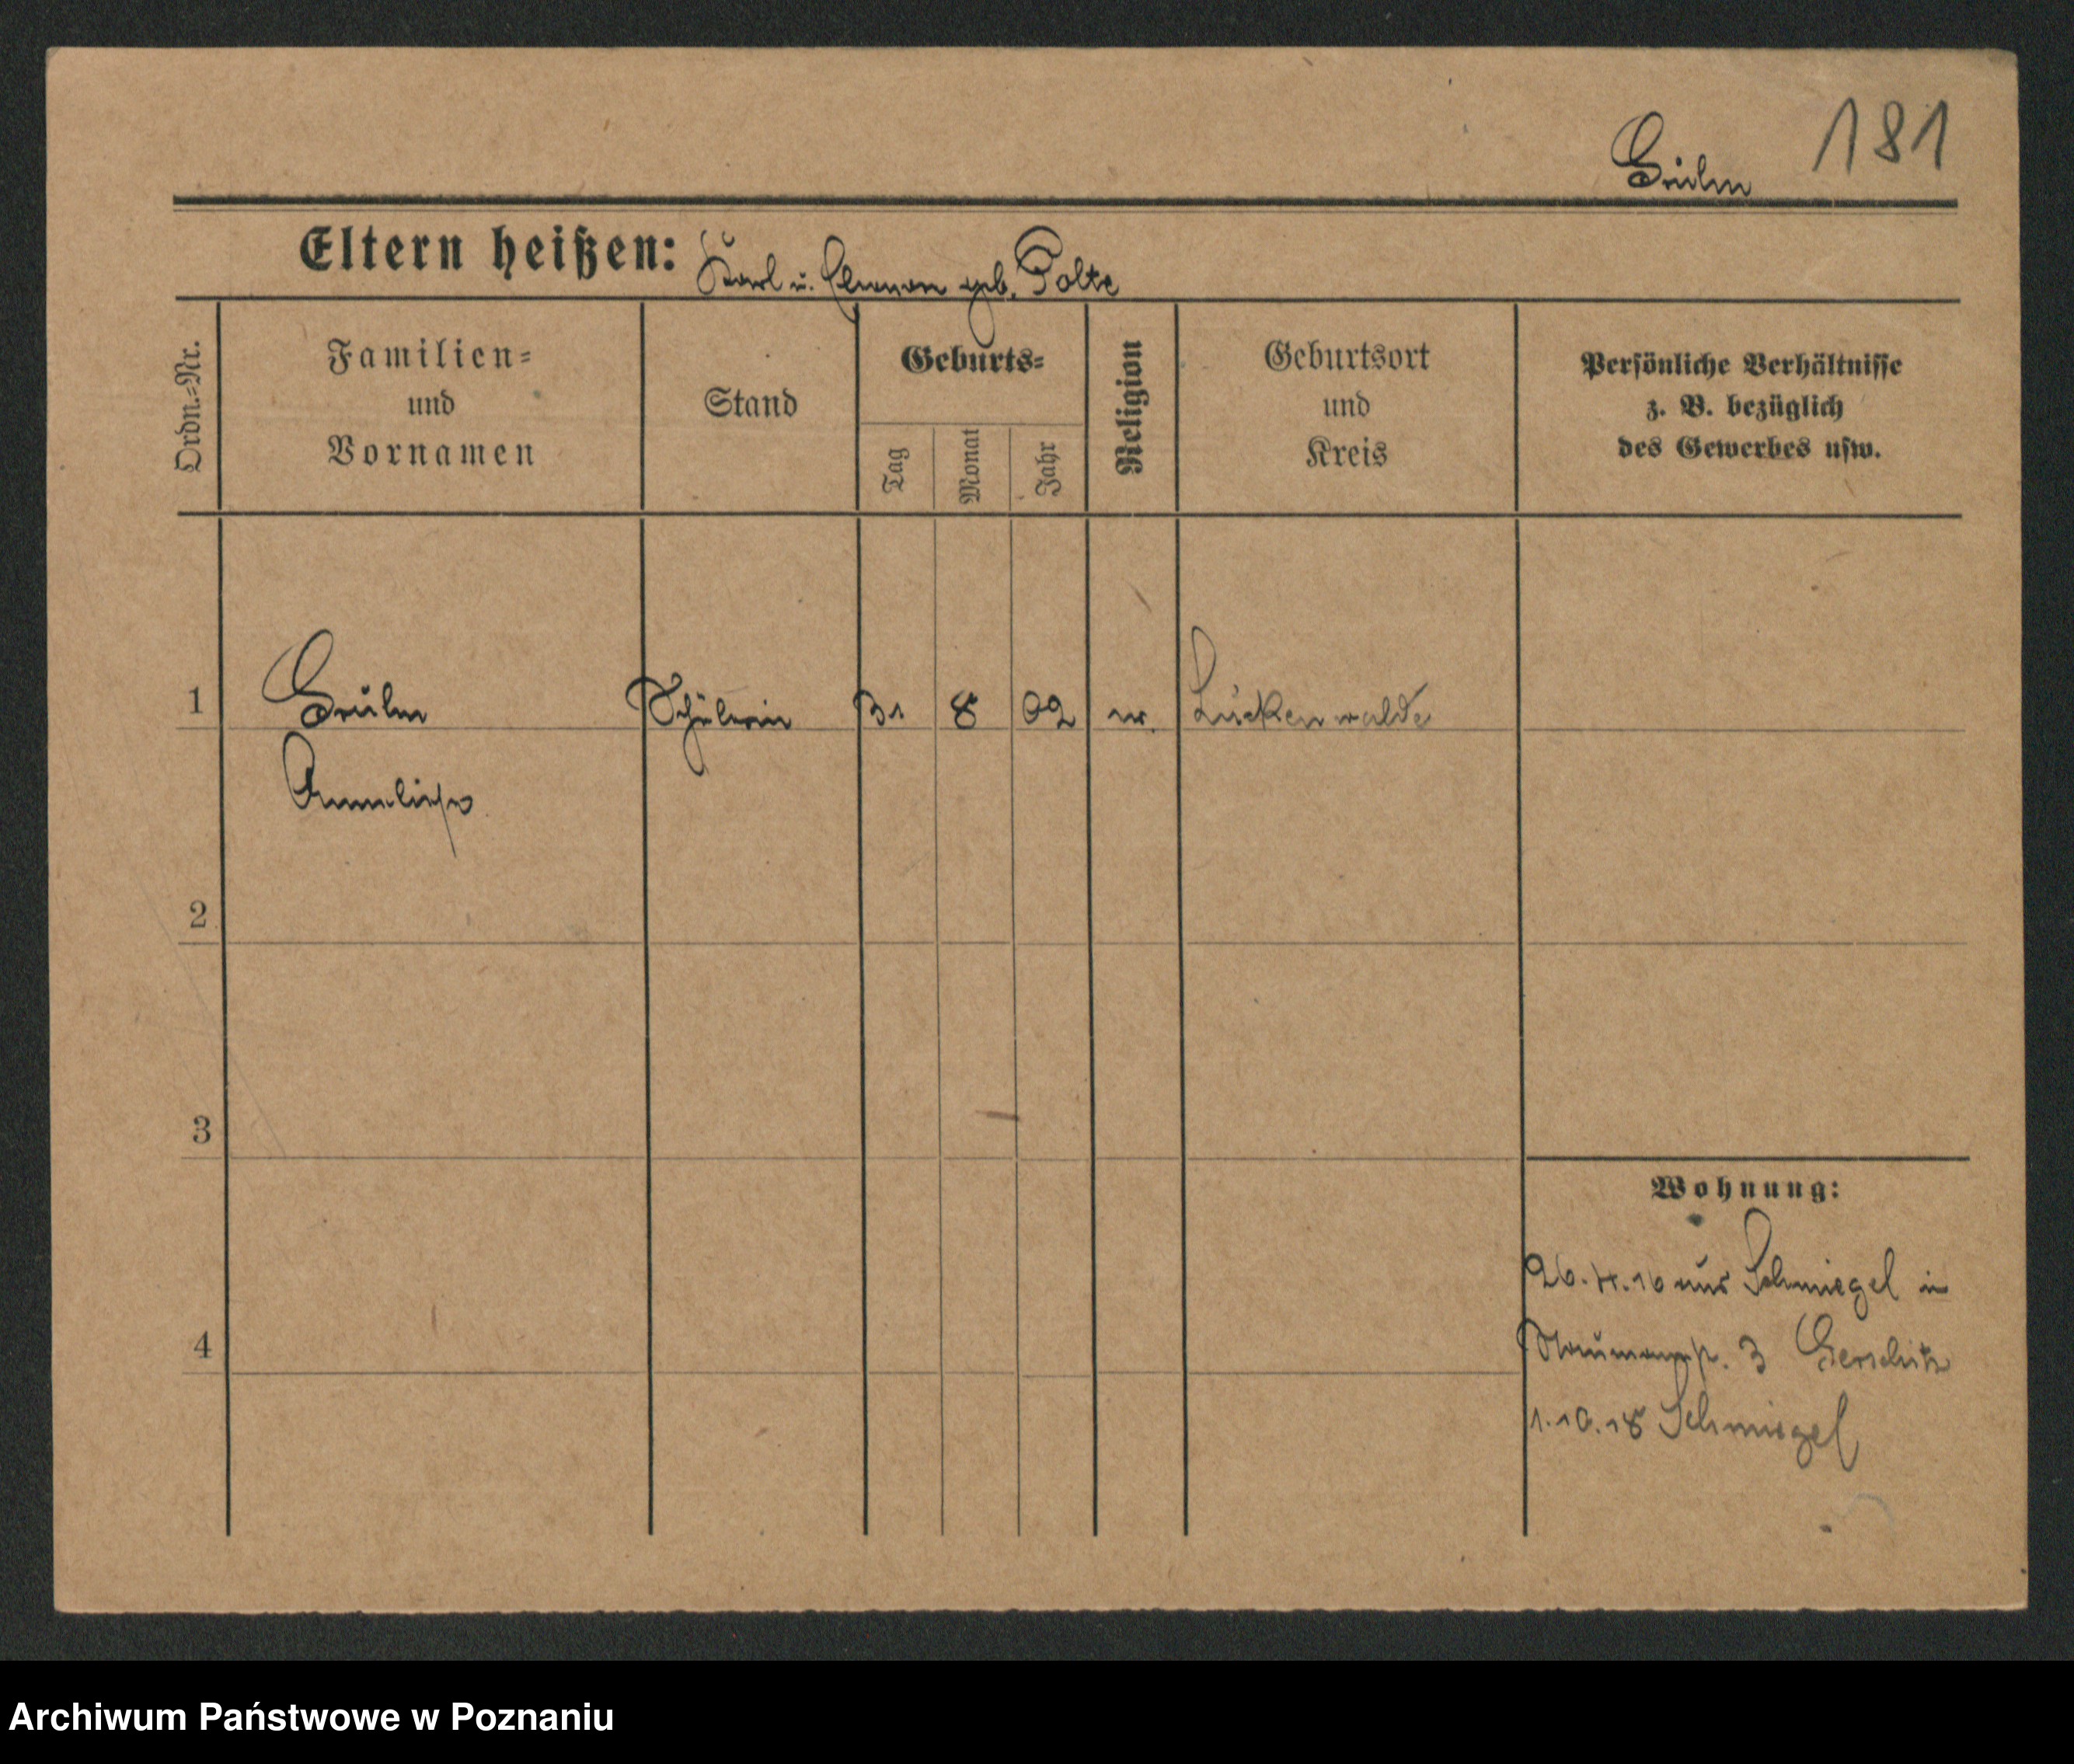 181
Eltern heißen: Karl u. geb. Polte
Ordn.=Nr.
Familien=
und
Vornamen
Stand
Geburts=
Tag
Monat
Jahr
Religion
Geburtsort
und
Kreis
Persönliche Verhältnisse
z. B. bezüglich
des Gewerbes usw.
1
Schülerin 31 8 02 Luckenwalde
Anneliese
2
3
4
Wohnung:
26. 4. 16 aus Schmiegel in
Naumannstr. 3
1. 10. 18 Schmiegel
Archiwum Państwowe w Poznaniu